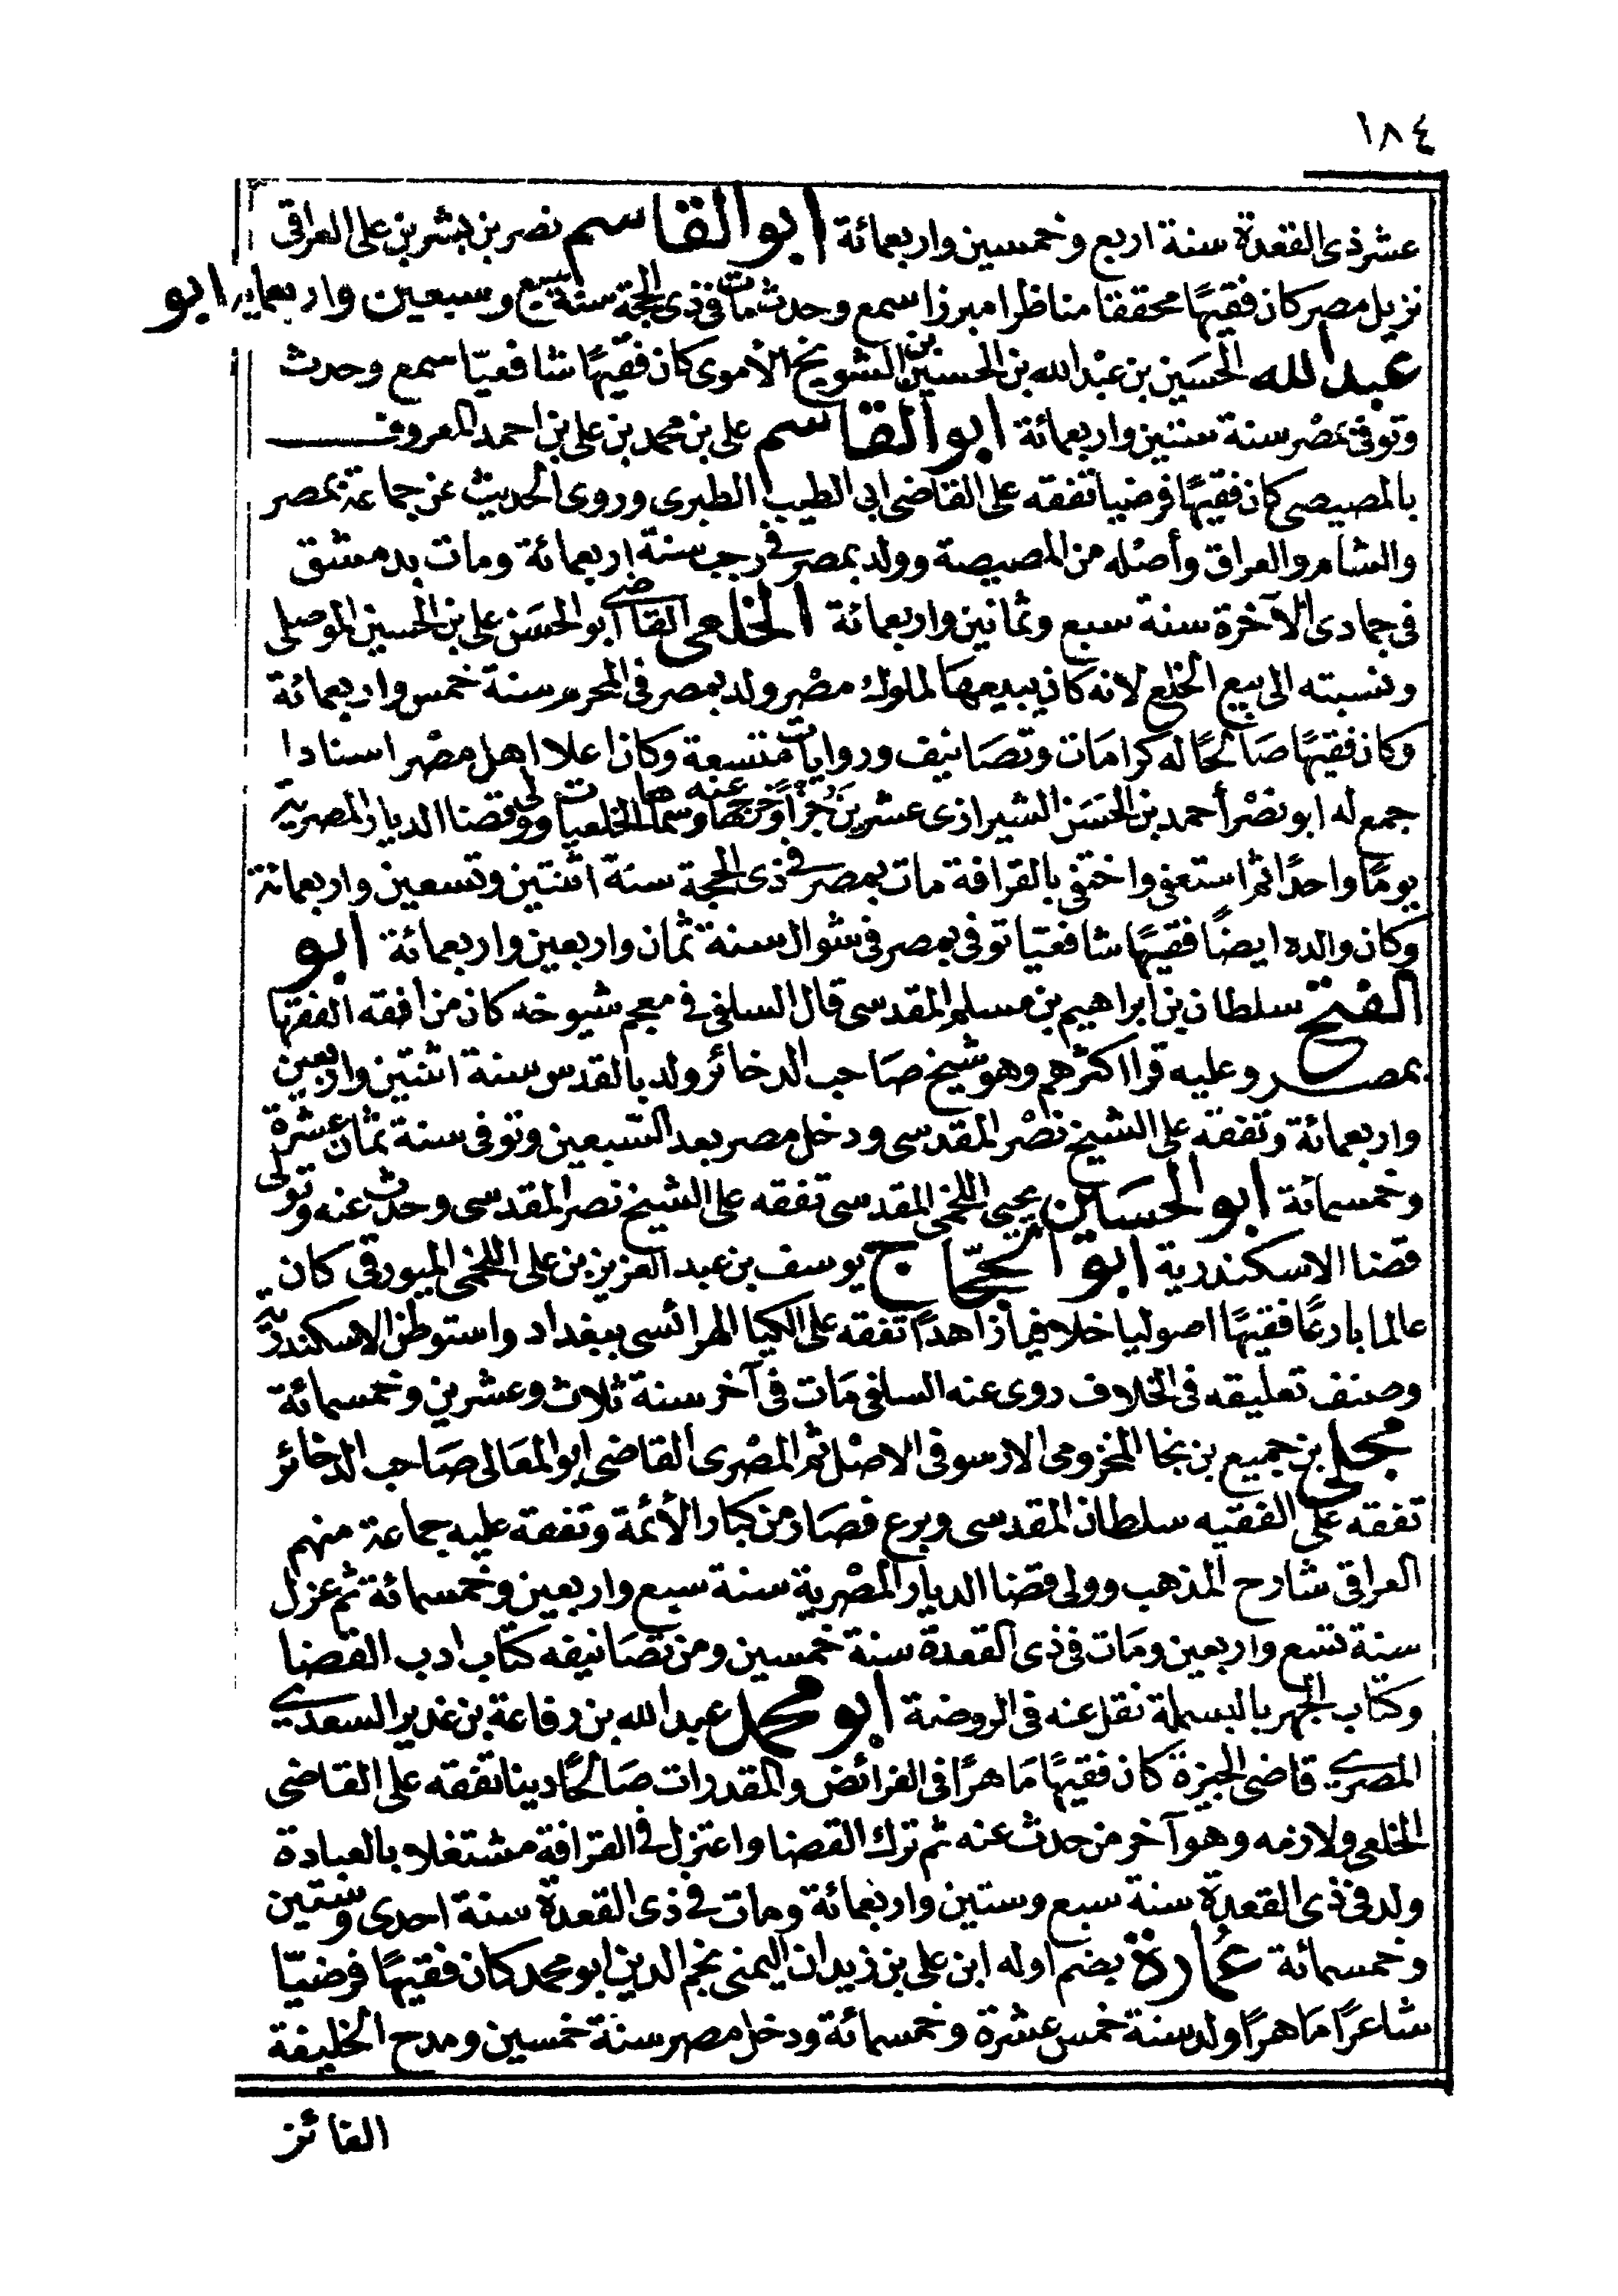 ١٨٤
عشر ذى القعدة سنة اربع وخمسين واربعمائة ابو القاسم نصر بن بشر بن على العراقى
نزيل مصر كان فقيهًا محققا مناظرا مبرزا سمع وحدث مات فى ذى الحجة سنة سبع وسبعين واربعماية ابو
عبد الله الحَسَين بن عبْد الله بن الحسين بن الشويخ الأموى كان فقيهًا شافعيّا سمع وحدث
وتوفى بمصْر سنة ستين واربعمائة ابو القاسم على بن محمد بن على بن احمد المعروف
بالمصيصى كان فقيهًا فرضيا تفقه على القاضى ابى الطيب الطبرى وروى الحديث عن جماعة بمصر
والشام والعراق وأصْله من المصيصة وولد بمصر فى رجب سنة اربعمائة ومات بدمشق
فى جمادى الآخرة سنة سبع وثمانين واربعمائة الخلعى القاضى ابو الحَسَن على بن الحسين الموصلى
ونسبته الى بيع الخلع لانه كان يبيعهَا لملوك مصْر ولد بمصر فى المحرم سنة خمس واربعمائة
وَكان فقيهًا صَالحًا له كرامَات وتصَانيف وروايات متسعة وكان اعلا اهل مصْر اسنادا
جمع له ابو نصْر أحمد بن الحَسَن الشيرازى عشرين جزأ وخرجها عنه وسماها الخلعيات وولى قضا الديار المصرية
يومًا واحدًا ثم استعفى واختفى بالقرافة مات بمصر فى ذى الحجة سنة اثنتين وتسعين واربعمائة
وكان والده ايضًا فقيهًا شافعيّا توفى بمصر فى شوال سنة ثمان واربعين واربعمائة ابو
الفتح سلطان بن ابراهيم بن مسلم المقدسى قال السلفى فى معجم شيوخه كان من افقه الفقها
بمصر وعليه قرا اكثرهم وهو شيخ صَاحب الدخائر ولد بالقدس سنة اثنتين واربعين
واربعمائة وتفقه على الشيخ نصْر المقدسى ودخل مصر بعد السّبعين وتوفى سنة ثمان عشرة
وخمسمائة ابو الحسَاين يحيى اللخمى المقدسى تفقه على الشيخ نصر المقدسى وحدث عنه وتولى
قضا الاسكندرية ابو الحجّاج يوسف بن عبد العزيز بن على اللخمى الميورقى كان
عالما بارعًا فقيهًا اصوليا خلافيا زاهدًا تفقه على الكيا الهرائسى ببغداد واستوطن الاسكندرية
وصنف تعليقه فى الخلاف روى عنه السلفى مَات فى آخر سنة ثلاث وعشرين وخمسمائة
مجلى بن جميع بن نجا المخزومى الارسوفى الاصْل ثم المصْرى القاضى ابو المعَالى صَاحب الدخائر
تفقه على الفقيه سلطان المقدسى وبرع فصَار من كبار الأئمة وتفقه عليه جماعة منهم
العراقى شارح المذهب وولى قضا الديار المصْرية سنة سبع واربعين وخمسمائة ثم عزل
سنة تسع واربعين ومَات فى ذى القعدة سنة خمسين ومن تصَانيفه كتاب ادب القضا
وكتاب الجهر بالبسملة نقل عنه فى الروضة ابو محمد عبد الله بن رفاعة بن غدير السعدي
المصري قاضى الجيزة كان فقيهًا مَاهرًا فى الفرائض والمقدرات صَالحًا دينا تفقه على القاضى
الخلعى ولازمه وهو آخر من حدث عنه ثم ترك القضا واعتزل فى القرافة مشتغلا بالعبادة
ولد فى ذى القعدة سنة سبع وستين واربعمائة ومات فى ذى القعدة سنة احدى وستين
وخمسمائة عُمارة بضم اوله ابن على بن زيدان اليمنى نجم الدين ابو محمد كان فقيهًا فرضيّا
شاعرًا مَاهرًا ولد سنة خمس عشرة وخمسمائة ودخل مصر سنة خمسين ومدح الخليفة
الفائز